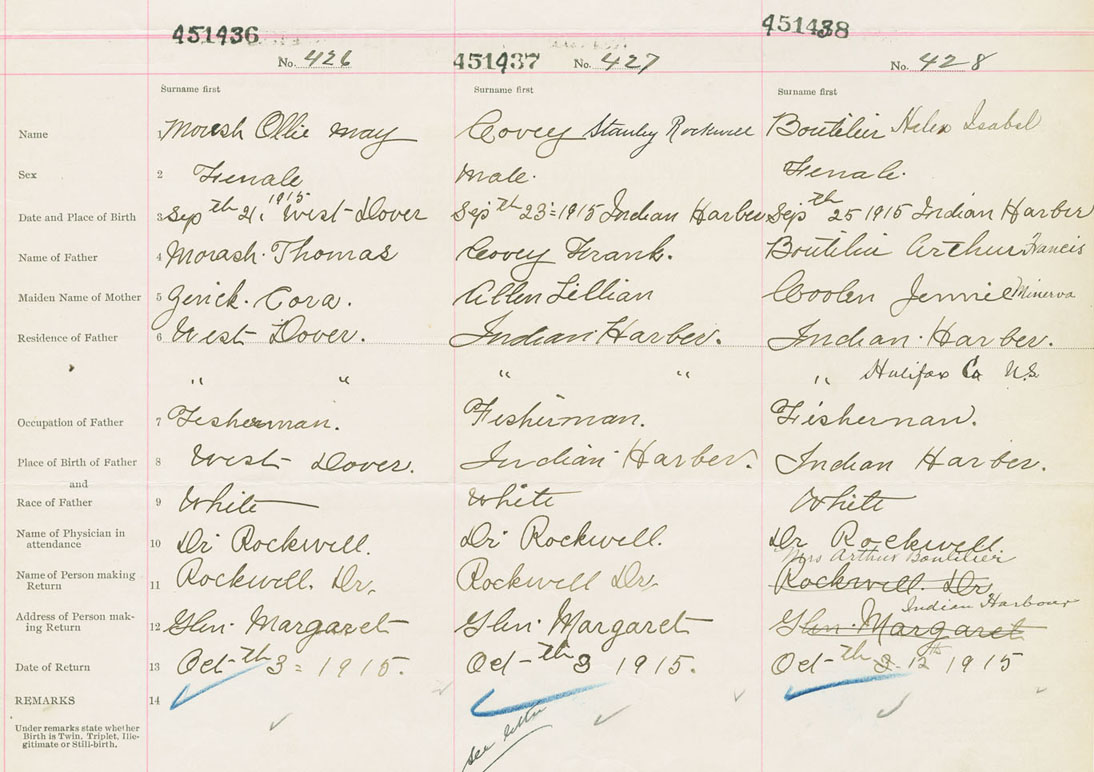 451436 451437 451438
No. 426 No. 427 No. 428
Surname first Surname first Surname first
Name 1 Morash Ollie may Covey Stanley Rockwell Boutilier Helen Isabel
Sex 2 Female male. Female.
Date and Place of Birth 3 Septh 21, 1915 West-Dover Septh 23=1915 Indian Harber Septh 25 1915 Indian Harber
Name of Father 4 Morash. Thomas Covey Frank. Boutilier Arthur Francis
Maiden Name of Mother 5 Cora. Allen Lillian Coolen Jennie Minerva
Residence of Father 6 West Dover. Indian Harber. Indian. Harber.
" " " " " Halifax Co N.S
Occupation of Father 7 Fisherman. Fisherman. Fisherman.
Place of Birth of Father 8 West Dover. Indian Harber. Indian Harber.
and
Race of Father 9 White White White
Name of Physician in attendance 10 Dr Rockwell. Dr Rockwell. Dr Rockwell
Mrs Arthur Boutilier
Name of Person making Return 11 Rockwell. Dr. Rockwell Dr. Rockwell. Dr
Indian Harbour
Address of Person making Return 12 Glen. Margaret Glen. Margaret Glen. Margaret
Date of Return 13 Oct-th 3=1915. Oct-th 3 1915. Oct-th 12th 1915
REMARKS 14
see letter
Under remarks state whether
Birth is Twin, Triplet, Ille-
gitimate or Still-birth.